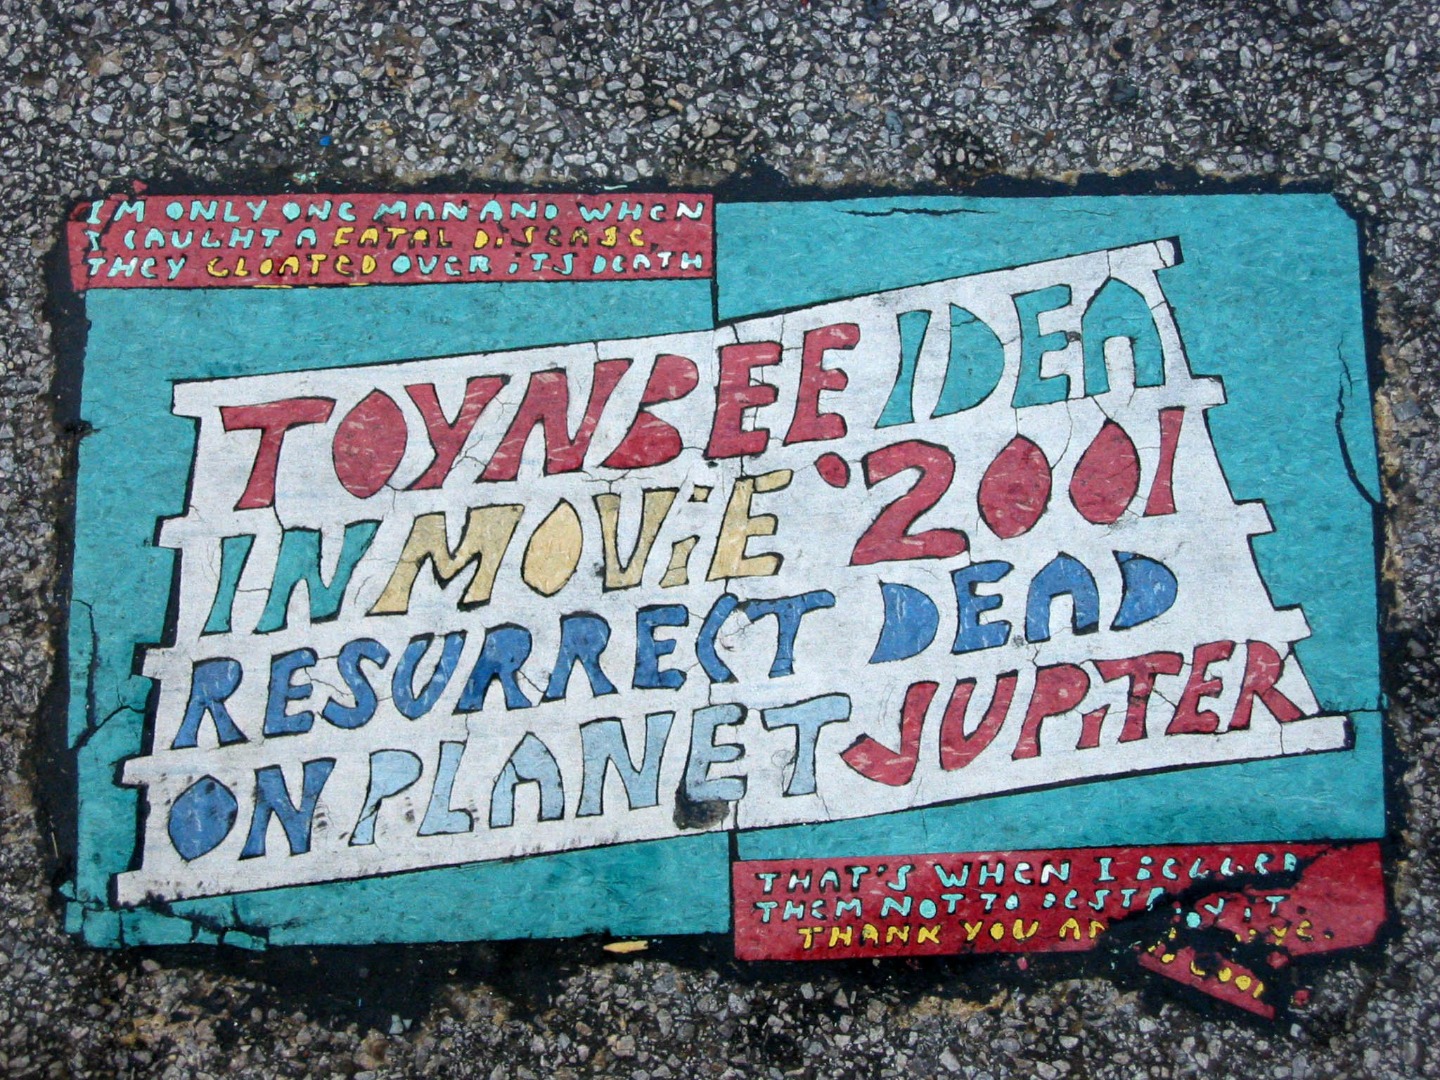 I'M ONLY ONE MAN AND WHEN
I CAUGHT A FATAL DISEASE,
THEY GLOATED OVER ITS DEATH
TOYNBEE IDEA
IN MOViE '2001
RESURRECT DEAD
ON PLANET JUPiTER
THAT'S WHEN I BEGGED
THEM NOT TO DESTROY IT.
THANK YOU AND